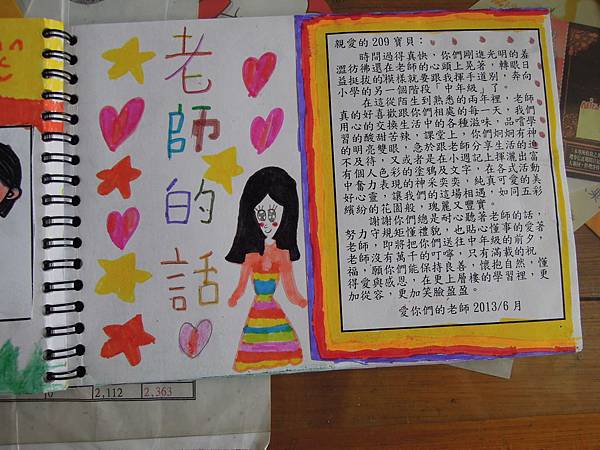 老師的話
親愛的 209 寶貝：
時間過得真快，你們剛進光明的羞
澀彷彿還在老師的心頭上晃著，轉眼日
益挺拔的模樣就要跟我揮手道別，奔向
小學的另一個階段「中年級」了。
在這從陌生到熟悉的兩年裡，老師
真的好喜歡跟你們相處的每一天，我們
用心的交換生活中的各種滋味，品嚐學
習的酸甜苦辣，課堂上，你們炯炯有神
的明亮雙眼，急於跟老師分享生活的迫
不及待，又或者是在小週記上揮灑出富
有個人色彩的塗鴉及文字，在各式活動
中奮力表現的神采奕奕，純真可愛的美
好心靈，讓我們的這場相遇，如同五彩
繽紛的花園般，瑰麗又豐實。
謝謝你們總是耐心聽著老師的話，
努力守規矩懂禮貌，也貼心懂事的愛著
老師，即將把你們送往中年級的前夕，
老師沒有萬千的叮嚀，只有滿載的祝
福，願你們能保持良善，懷抱自然，懂
得愛與感恩，在更上層樓的學習裡，更
加從容，更加笑臉盈盈。
愛你們的老師 2013/6 月
10 2,112 2,363